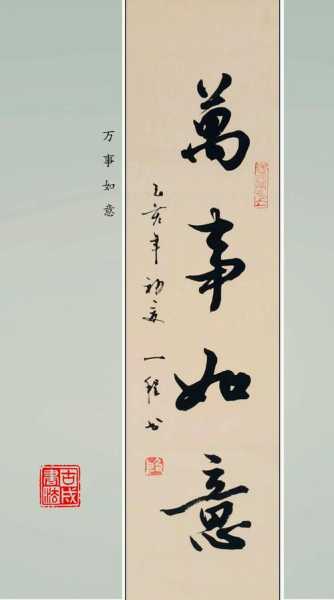 萬事如意
乙亥年初夏 一程书
万事如意
古成
書法